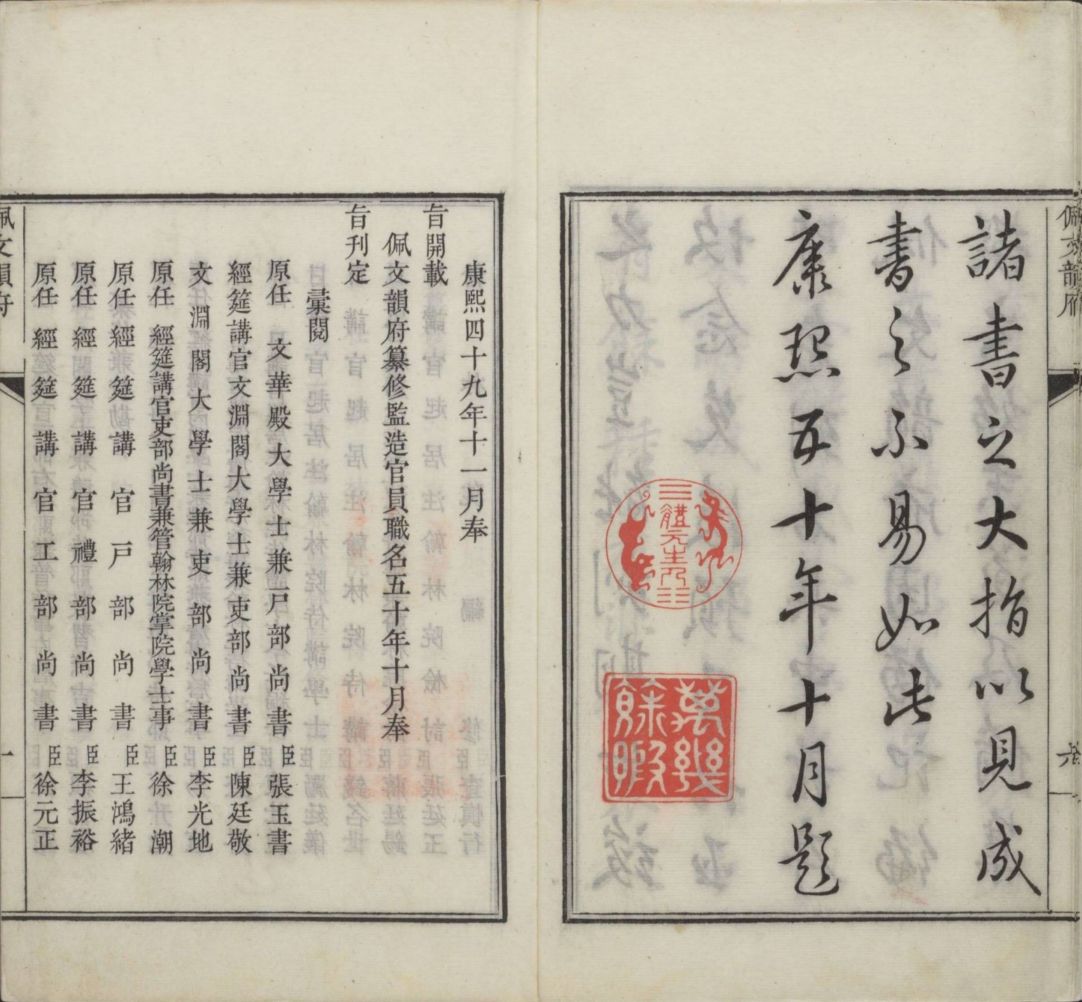 佩文韻府
諸書之大指以見成
書之不易如此
康熙五十年十月題
體元主人
萬幾
餘暇
康熙四十九年十一月奉
旨開載
佩文韻府纂修監造官員職名五十年十月奉
旨刊定
彙閱
原任 文華殿大學士兼戶部尚書臣張玉書
經筵講官文淵閣大學士兼吏部尚書臣陳廷敬
文淵閣大學士兼吏部尚書臣李光地
原任 經筵講官吏部尚書兼管翰林院掌院學士事臣徐潮
原任 經筵講官戶部尚書臣王鴻緒
原任 經筵講官禮部尚書臣李振裕
原任 經筵講官工部尚書臣徐元正
佩文韻府
一